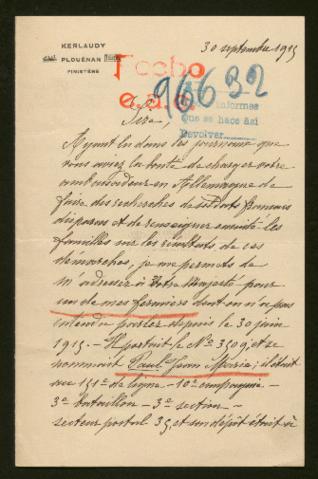 KERLAUDY
PLOUÉNAN
FINISTÈRE
30 septembre 1915
96632
e.a.c.
informes
Que se hace así
Devolver
Sire,
Ayant lu dans les journaux que
vous aviez la bonté de charger votre
ambassadeur en Allemagne de
faire des recherches de soldats français
disparus et de renseigner ensuite les
familles sur les résultats de ces
démarches, je me permets de
m'adresser à Votre Majesté pour
un de mes fermiers dont on n'a pas
entendu parler depuis le 30 juin
1915. - Il portait le No 3509, et se
nommait Paul Jean Marie; il était
au 151e de ligne - 10e compagnie -
3e bataillon - 3e section -
secteur postal 35 et son dépôt était à